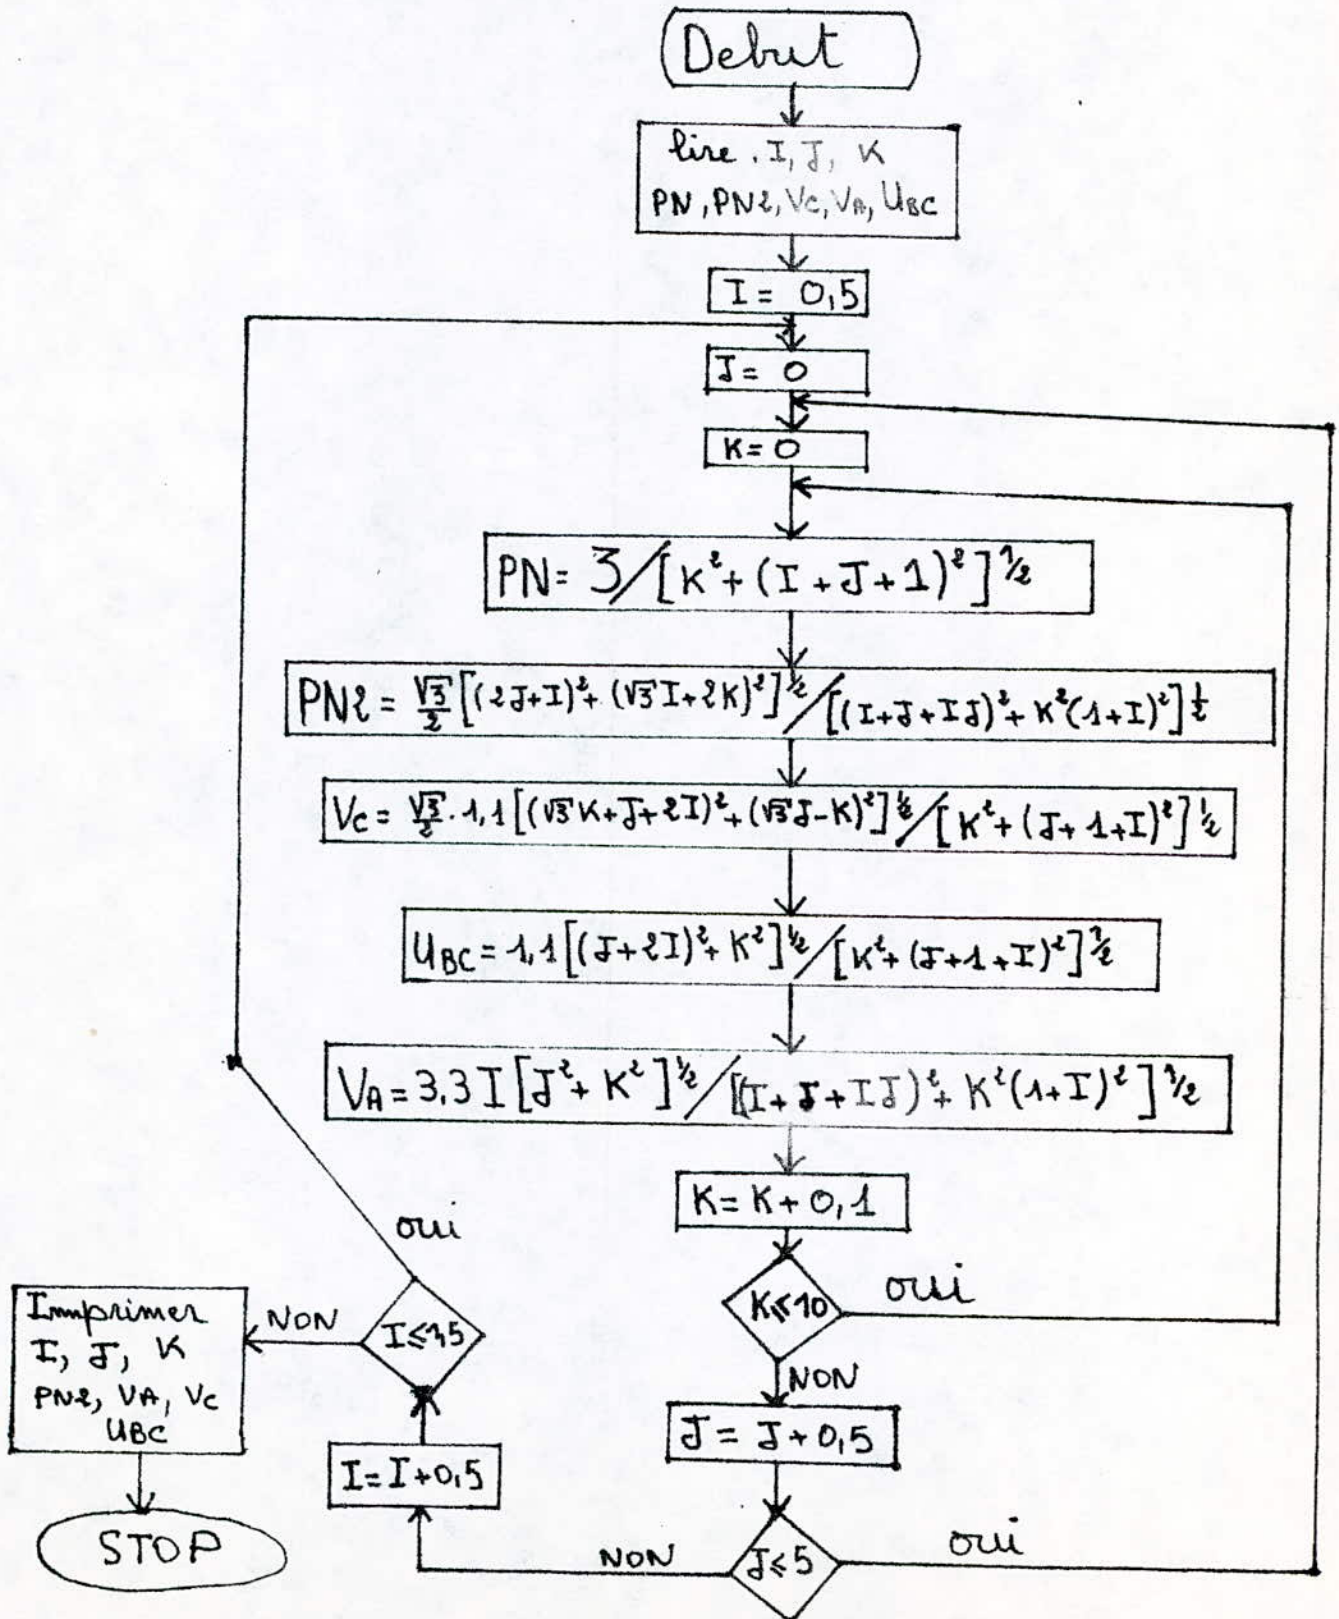 Debut
lire . I, J, K
PN, PN2, Vc, VA, UBC
I = 0,5
J = 0
K = 0
PN = 3/[K² + (I + J + 1)²]^½
PN2 = √3/2 [(2J+I)² + (√3 I+2K)²]^½ / [(I+J+IJ)² + K²(1+I)²]^½
Vc = √3/2 . 1,1 [(√3 K+J+2I)² + (√3 J-K)²]^½ / [K² + (J+1+I)²]^½
UBC = 1,1 [(J+2I)² + K²]^½ / [K² + (J+1+I)²]^½
VA = 3,3 I [J² + K²]^½ / [(I+J+IJ)² + K²(1+I)²]^½
K = K + 0,1
K ≤ 10
oui
NON
J = J + 0,5
J ≤ 5
oui
NON
I = I + 0,5
oui
NON
Immprimer
I, J, K
PN2, VA, Vc
UBC
STOP